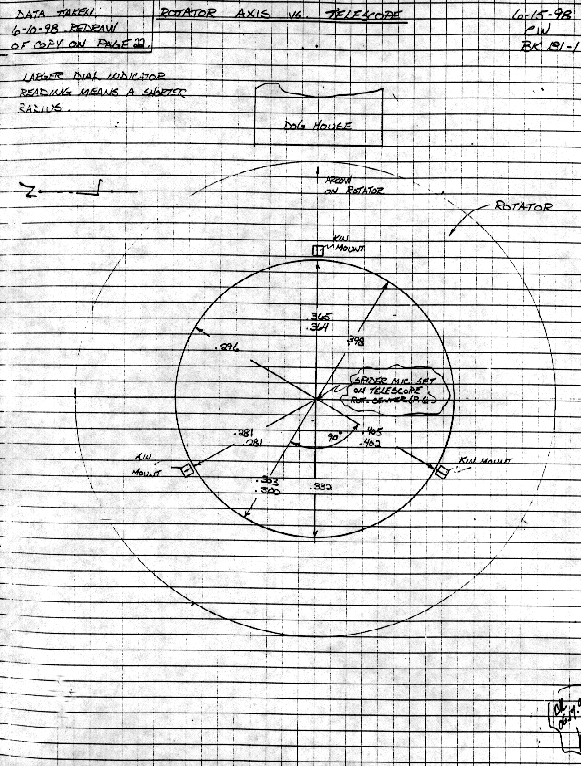 DATA TAKEN,
6-10-98 REDRAW
OF COPY ON PAGE 22.
ROTATOR AXIS VS. TELESCOPE
6-15-98
BK 191-1
LARGER DIAL INDICATOR
READING MEANS A SHORTER
RADIUS.
DOG HOUSE
N
ARROW
ON ROTATOR
ROTATOR
KIN
MOUNT
.365
.364
.398
.296
SPIDER MIC SET
ON TELESCOPE
ROT. CENTER
.281
.281
90°
.405
.402
KIN
MOUNT
KIN MOUNT
.303
.300
.332